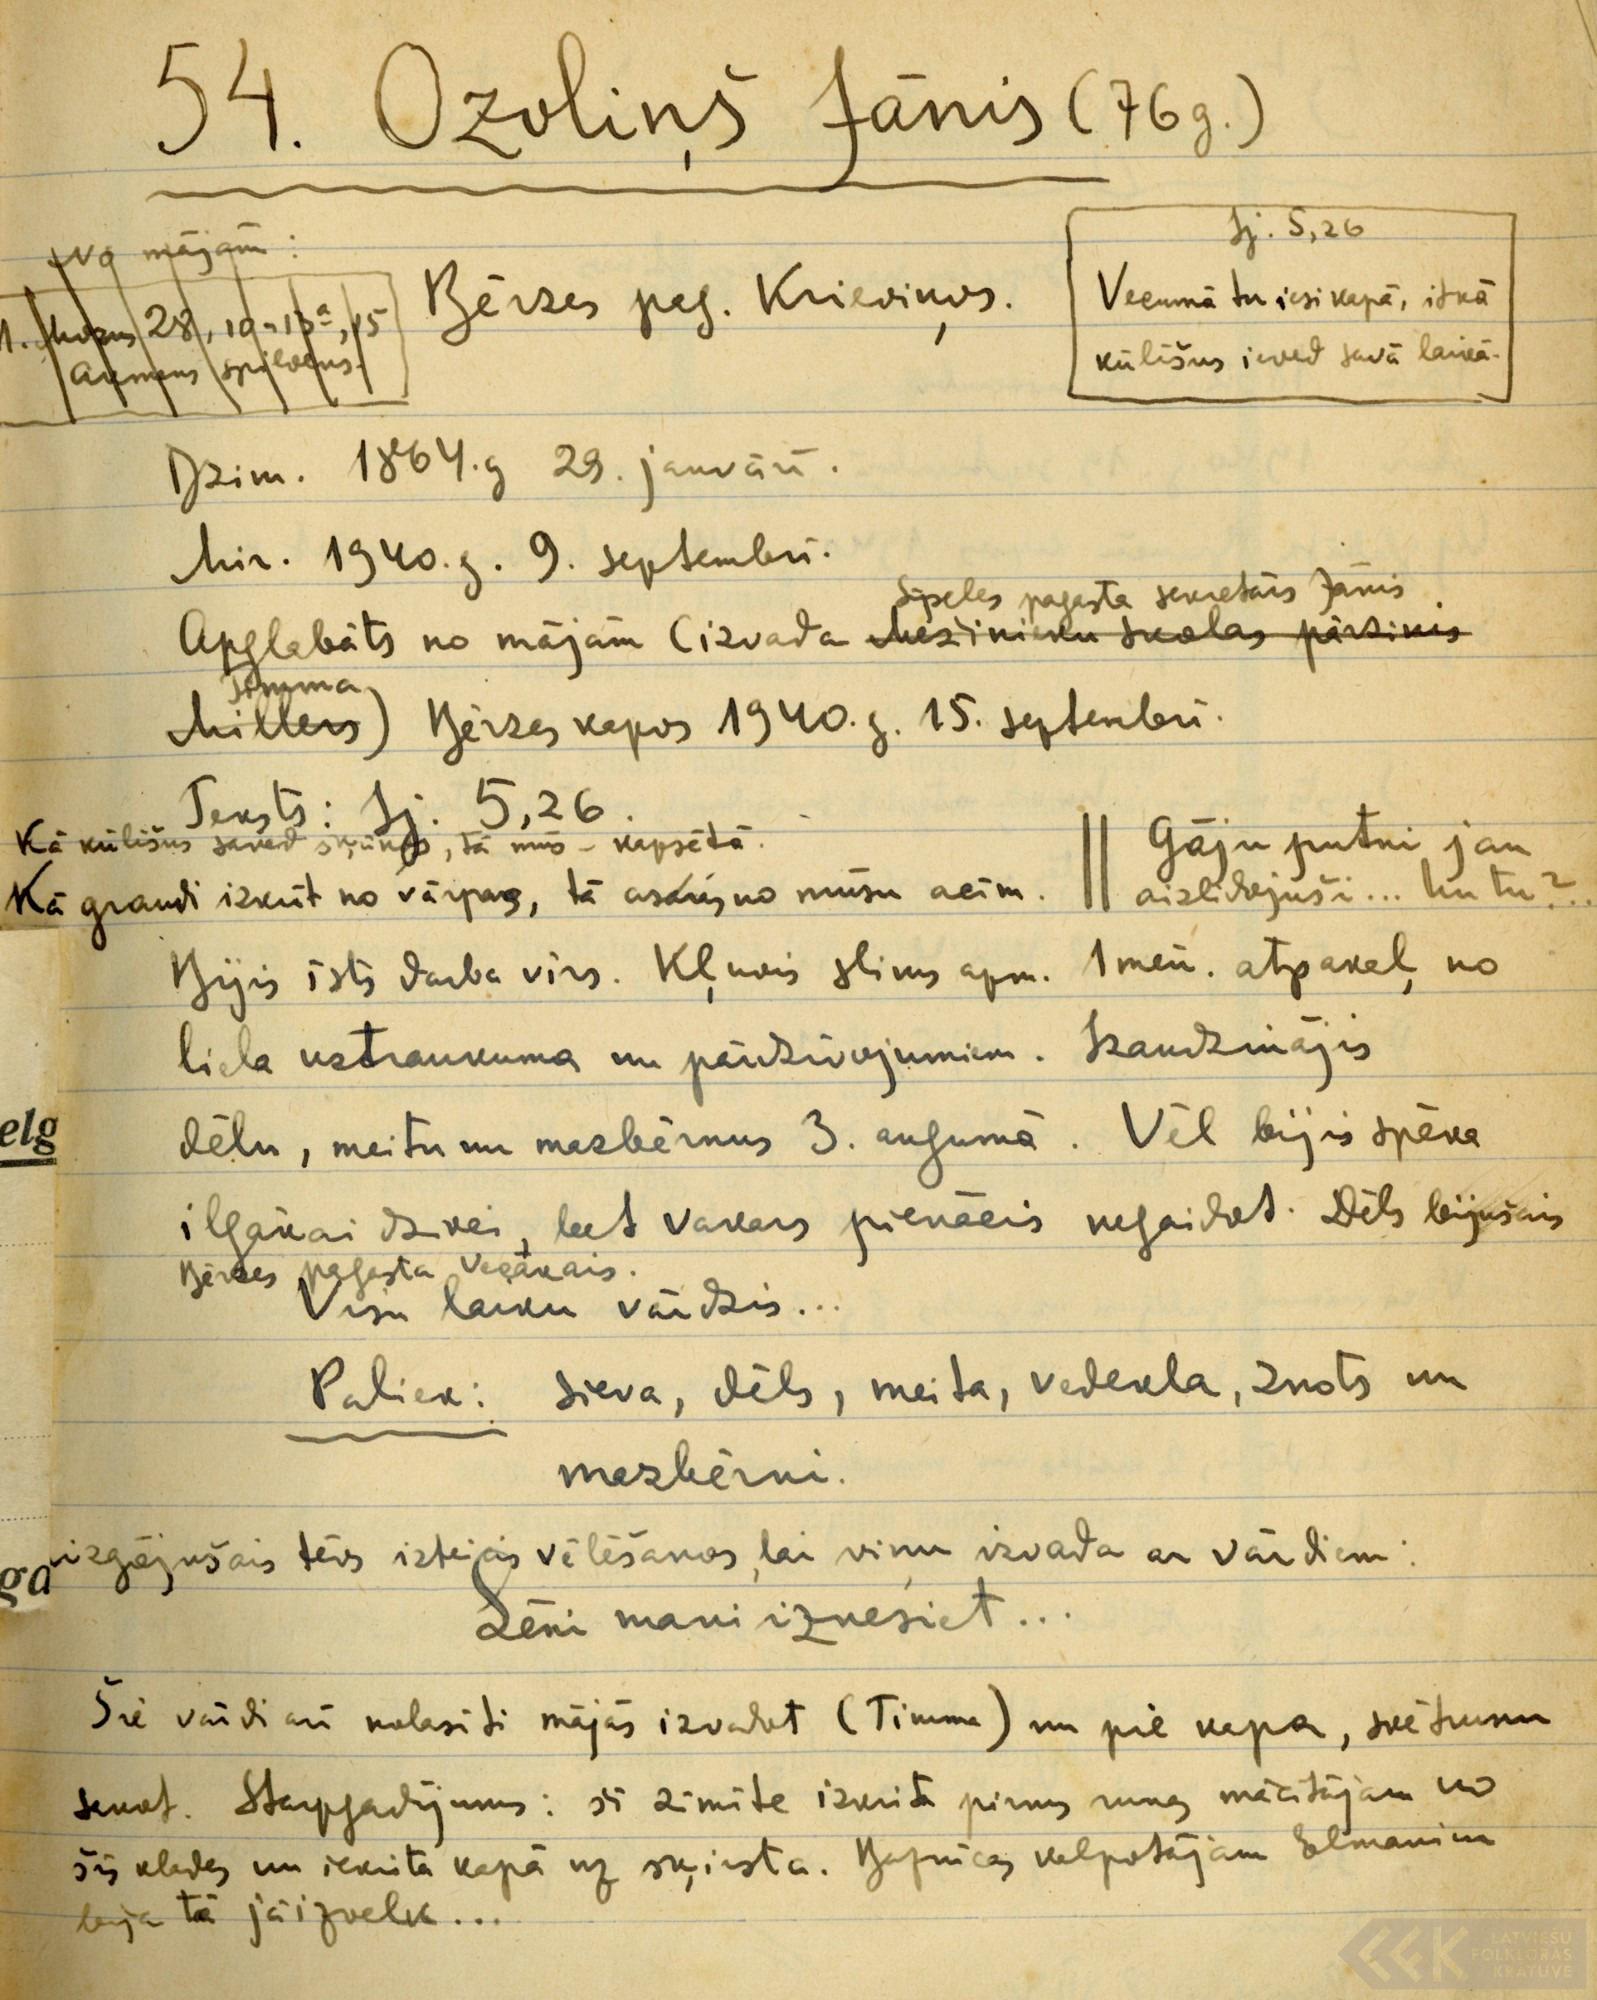 54. Ozoliņš Jānis (76g.)
No mājām:
1. Mozus 28, 10-13ª, 15
Akmens spilvens.
Bērzes pag. Krieviņos.
Ij. 5,26
Vecumā tu iesi kapā, itkā
kūlīšus ieved savā laikā.
Dzim. 1864.g 29. janvārī.
Mir. 1940.g. 9. septembrī.
Sīpeles pagasta sekretārs Jānis
Apglabāts no mājām (izvada Mežinieku skolas pārzinis
Timma
Millers) Bērzes kapos 1940.g. 15. septembrī.
Teksts: Ij. 5,26.
Kā kūlīšus saved šķūņos, tā mūs - kapsētā.
Kā graudi izkrīt no vārpas, tā asaras no mūsu acīm.
Gāju putni jau
aizlidojuši... Un tu?..
Bijis īsts darba vīrs. Kļuvis slims apm. 1 mēn. atpakaļ, no
liela uztraukuma un pārdzīvojumiem. Izaudzinājis
dēlu, meitu un mazbērnus 3. augumā. Vēl bijis spēka
ilgākai dzīvei, bet vakars pienācis negaidot. Dēls bijušais
Bērzes pagasta vecākais.
Visu laiku vārdzis...
Paliek: sieva, dēls, meita, vedekla, znots un
mazbērni.
elg
Aizgājušais tēvs izteicis vēlēšanos, lai viņu izvada ar vārdiem:
ga
Lēni mani iznesiet...
Šie vārdi arī nolasīti mājās izvadot (Timma) un pie kapa, svētrunu
sakot. Starpgadījums: šī zīmīte izkrita pirms runas mācītājam no
šīs klades un iekrita kapā uz šķirsta. Baznīcas kalpotājam Elmanim
bija tā jāizvelk...
LATVIEŠU
FOLKLORAS
KRĀTUVE